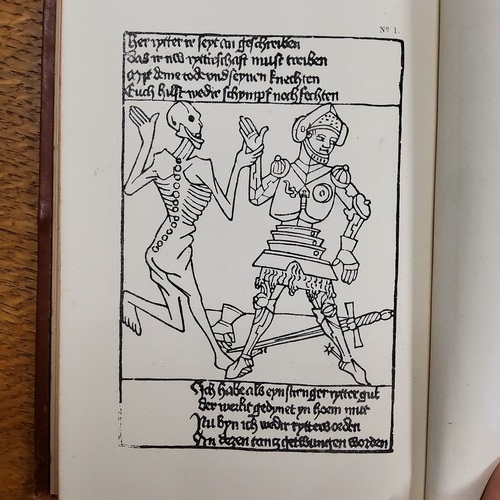 Nº 1.
Her rytter ir seyt an geschreiben
Das ir nw rytterschafft must treiben
Myt deme tode und seynen knechten
Euch hilft wedir schympf noch fechten
Ich habe als eyn strenger rytter gut
der werlt gedynet yn hoem mut
Nu byn ich wedir rytters orden
In dezen tantz getwungen worden